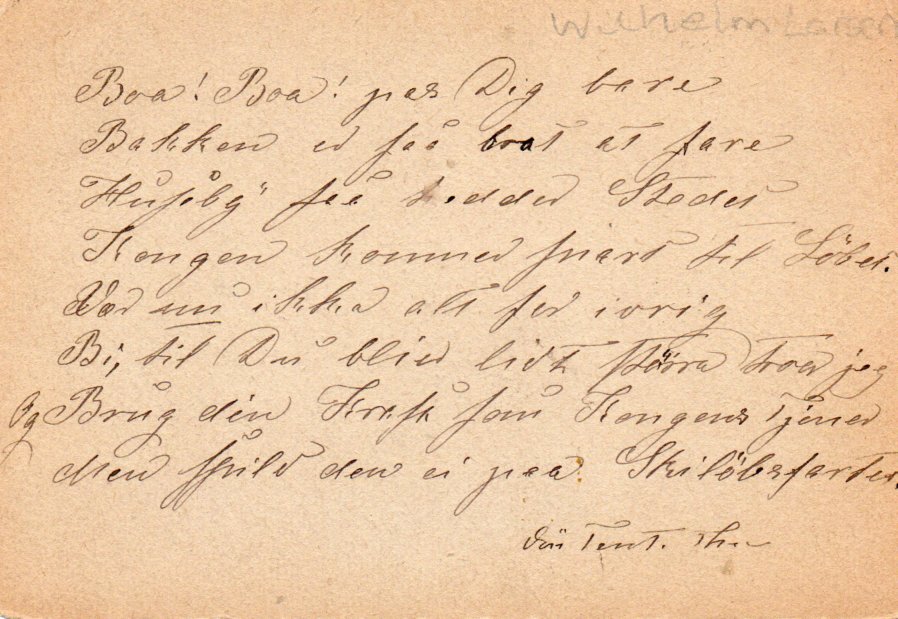 Wilhelm Larsen
Boa! Boa! pas Dig bare
Bakken er saa brat at fare
Huseby saa hedder Stedet
Kongen kommer snart til Löbet.
Vær nu ikke alt for ivrig
Bi, til Du bliver lidt större troer jeg
Og Brug din Kraft som Kongens Tjener
Men spild den ei paa Skilöbsfarter.
Din Tent.